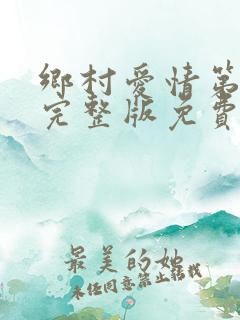 鄉村愛情第
完整版免費
最美的她
未任同意禁止转载